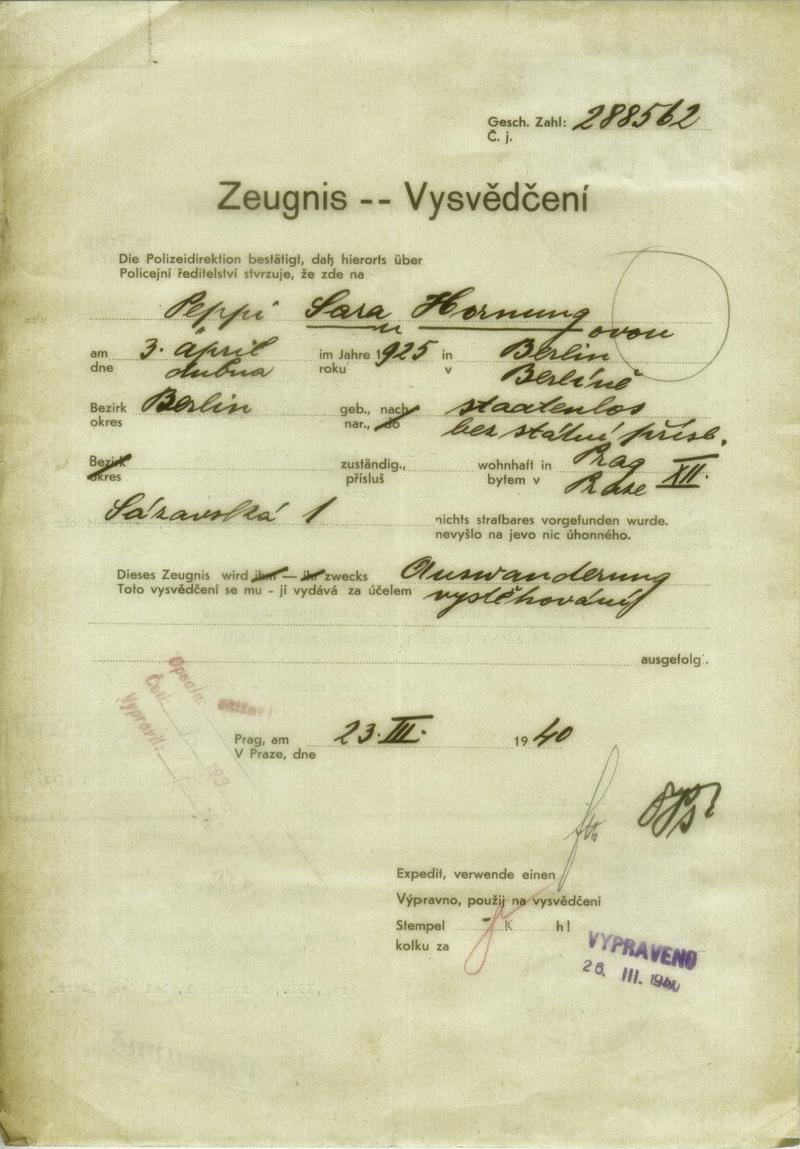 Gesch. Zahl: 288562
Č. j.
Zeugnis -- Vysvědčení
Die Polizeidirektion bestätigt, daß hierorts über
Policejní ředitelství stvrzuje, že zde na
Peppi Sara Hornung
ovou
am 3. April im Jahre 1925 in Berlin
dne dubna roku v Berlíně
Bezirk Berlin geb., nach staatenlos
okres nar., do bez státní přísl.
Bezirk zuständig., wohnhaft in Prag XII.
okres přísluš bytem v Praze
Sázavská 1 nichts strafbares vorgefunden wurde.
nevyšlo na jevo nic úhonného.
Dieses Zeugnis wird ihm — ihr zwecks Auswanderung
Toto vysvědčení se mu - jí vydává za účelem vystěhování
ausgefolg.
Opsala:
Četl:
Vypravil:
Prag, am 23. III. 1940
V Praze, dne
Expedit, verwende einen
Výpravno, použij na vysvědčení
Stempel K h!
kolku za
VYPRAVENO
26. III. 1940